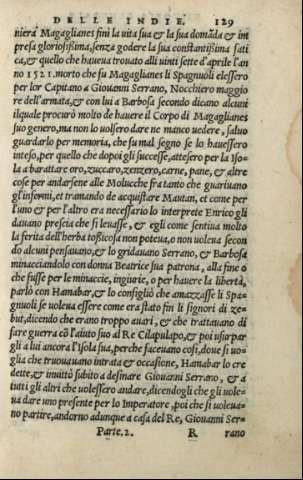 DELLE INDIE. 129
niera Magaglianes finì la uita sua & la sua domãda & im
presa gloriosißima, senza godere la sua constantißima fati
ca, & quello che haueua trouato alli uinti sette d'aprile l'an
no 1521. morto che fu Magaglianes li Spagnuoli elessero
per lor Capitano a Giouanni Serrano, Nocchiero maggio
re dell'armata, & con lui a Barbosa secondo dicano alcuni
ilquale procurò molto de hauere il Corpo di Magaglianes
suo genero, ma non lo uolsero dare ne manco uedere, saluo
guardarlo per memoria, che fu mal segno se lo hauessero
inteso, per quello che dopoi gli successe, attesero per la Iso-
la a barattare oro, zuccaro, zenzero, carne, pane, & altre
cose per andarsene alle Molucche fra tanto che guariuano
gl'infermi, et tramando de acquistare Mautan, et come per
l'uno & per l'altro era necessario lo interprete Enrico gli
dauano prescia che si leuasse, & egli come sentiua molto
la ferita dell'herba toßicosa non poteua, o non uoleua secon
do alcuni pensauano, & lo gridauano Serrano, & Barbosa
minacciandolo con donna Beatrice sua patrona, alla fine o
che fusse per le minaccie, ingiurie, o per hauere la libertà,
parlò con Hanabar, & lo consigliò che amazzasse li Spa-
gnuoli se uoleua essere come era stato fin lì signori di ze-
but, dicendo che erano troppo auari, & che trattauano di
fare guerra cõ l'aiuto suo al Re Cilapulapo, & poi usurpar
gli a lui ancora l'Isola sua, perche faceuano cosi, doue si uo-
glia che truouauano intrata & occasione, Hanabar lo cre
dette, & inuittò subito a desinare Giouanni Serrano, & a
tutti gli altri che uolessero andare, dicendogli che gli uole-
ua dare uno presente per lo Imperatore, poi che si uoleua-
no partire, andorno adunque a casa del Re, Giouanni Ser-
Parte. 2. R rano